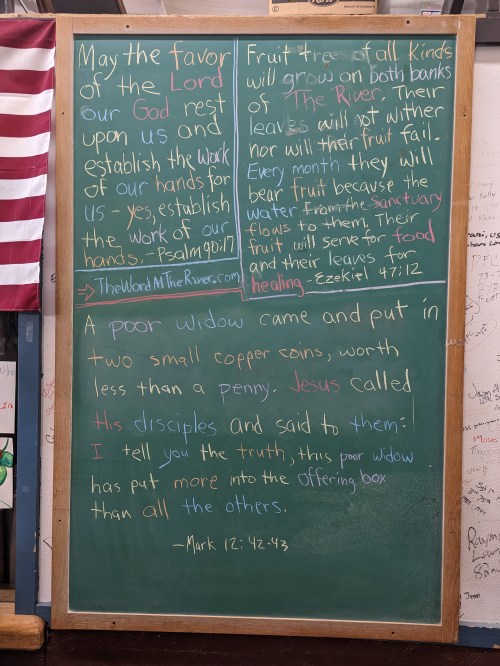 May the favor
of the Lord
our God rest
upon us and
establish the work
of our hands for
us - yes, establish
the work of our
hands. - Psalm 90:17
→ TheWordAtTheRiver.com
Fruit trees of all kinds
will grow on both banks
of The River. Their
leaves will not wither
nor will their fruit fail.
Every month they will
bear fruit because the
water from the sanctuary
flows to them. Their
fruit will serve for food
and their leaves for
healing - Ezekiel 47:12
A poor widow came and put in
two small copper coins, worth
less than a penny. Jesus called
His disciples and said to them:
I tell you the truth, this poor widow
has put more into the offering box
than all the others.
- Mark 12:42-43
Jenn